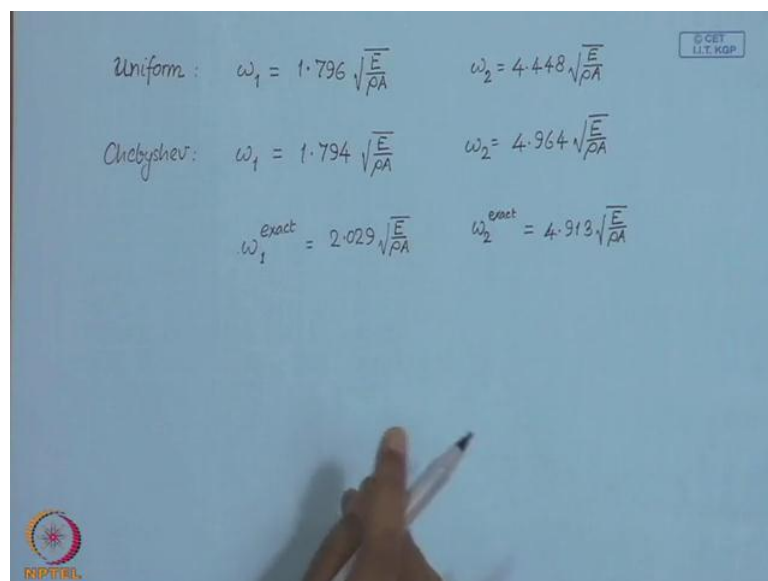 © CET
I.I.T. KGP
Uniform : ω₁ = 1.796 √(E/ρA) ω₂ = 4.448 √(E/ρA)
Chebyshev : ω₁ = 1.794 √(E/ρA) ω₂ = 4.964 √(E/ρA)
ω₁^exact = 2.029 √(E/ρA) ω₂^exact = 4.913 √(E/ρA)
NPTEL